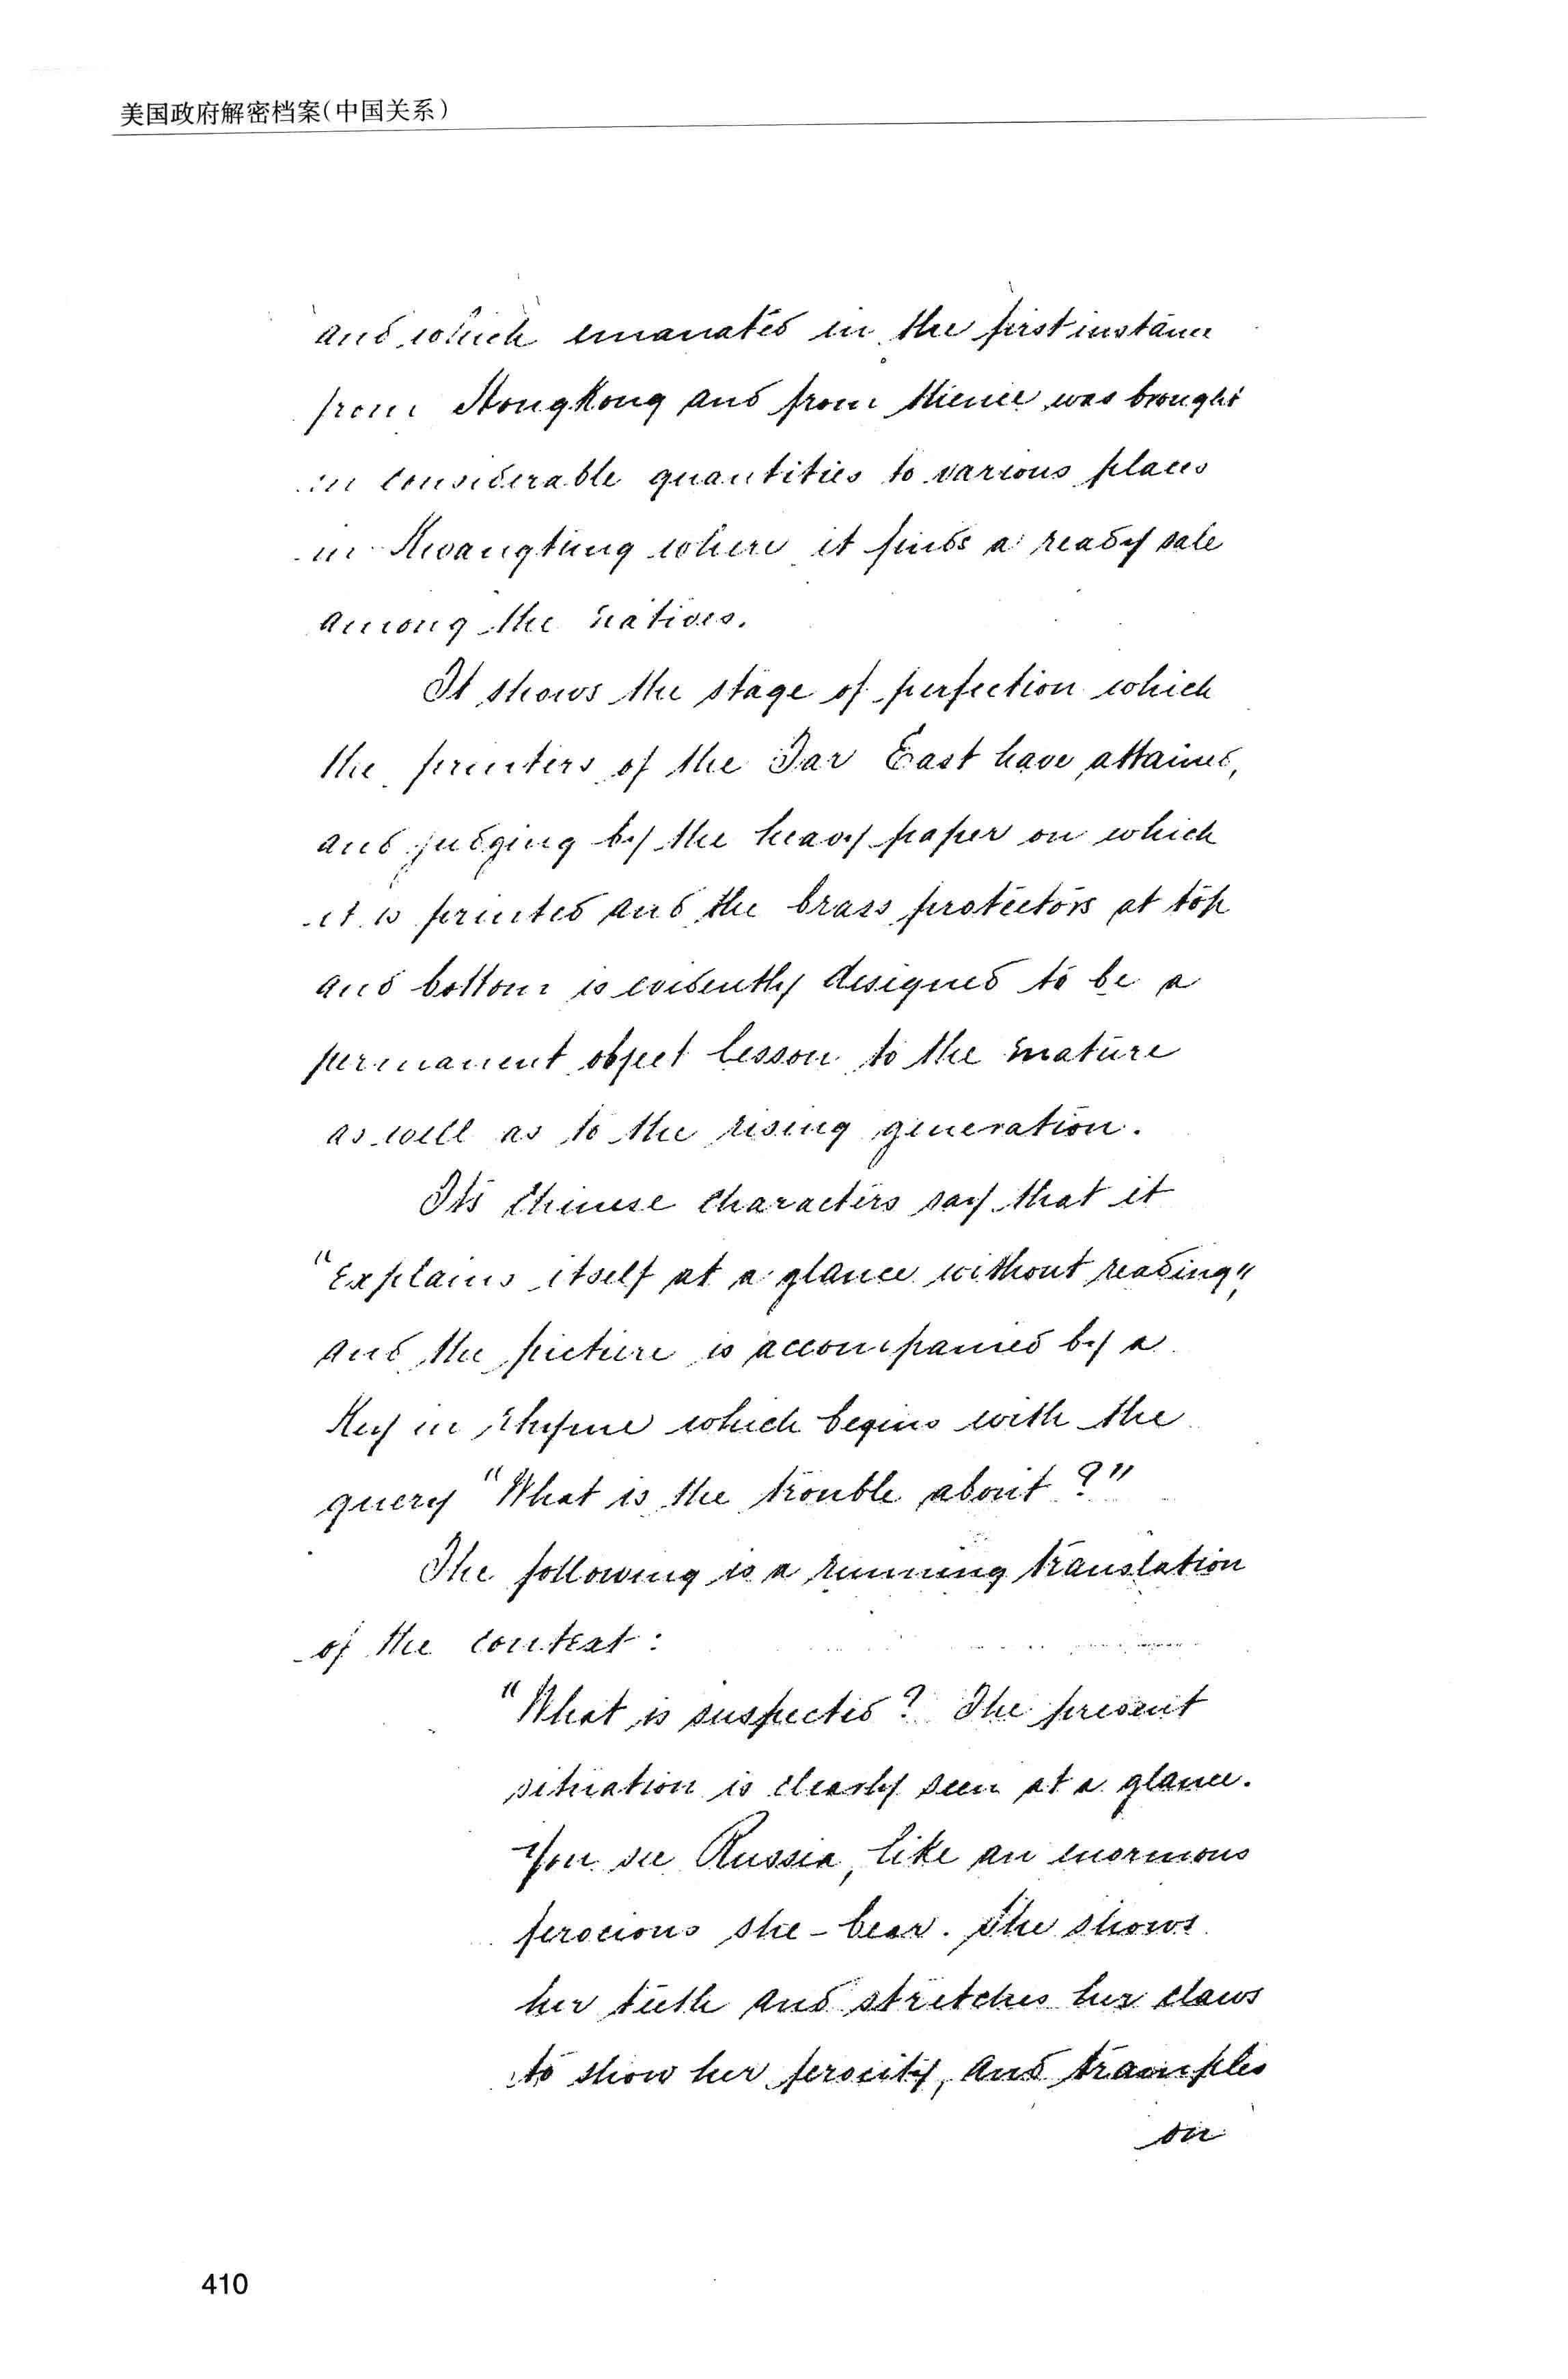 美国政府解密档案(中国关系)
and which emanated in the first instance
from HongKong and from thence was brought
in considerable quantities to various places
in Kwangtung where it finds a ready sale
among the natives.
It shows the stage of perfection which
the printers of the Far East have attained,
and judging by the heavy paper on which
it is printed and the brass protectors at top
and bottom is evidently designed to be a
permanent object lesson to the mature
as well as to the rising generation.
Its Chinese characters say that it
"Explains itself at a glance without reading",
and the picture is accompanied by a
Key in rhyme which begins with the
query "What is the trouble about?"
The following is a running translation
of the context:
"What is suspected? The present
situation is clearly seen at a glance.
You see Russia, like an enormous
ferocious she-bear. She shows
her teeth and stretches her claws
to show her ferocity, and tramples
on
410